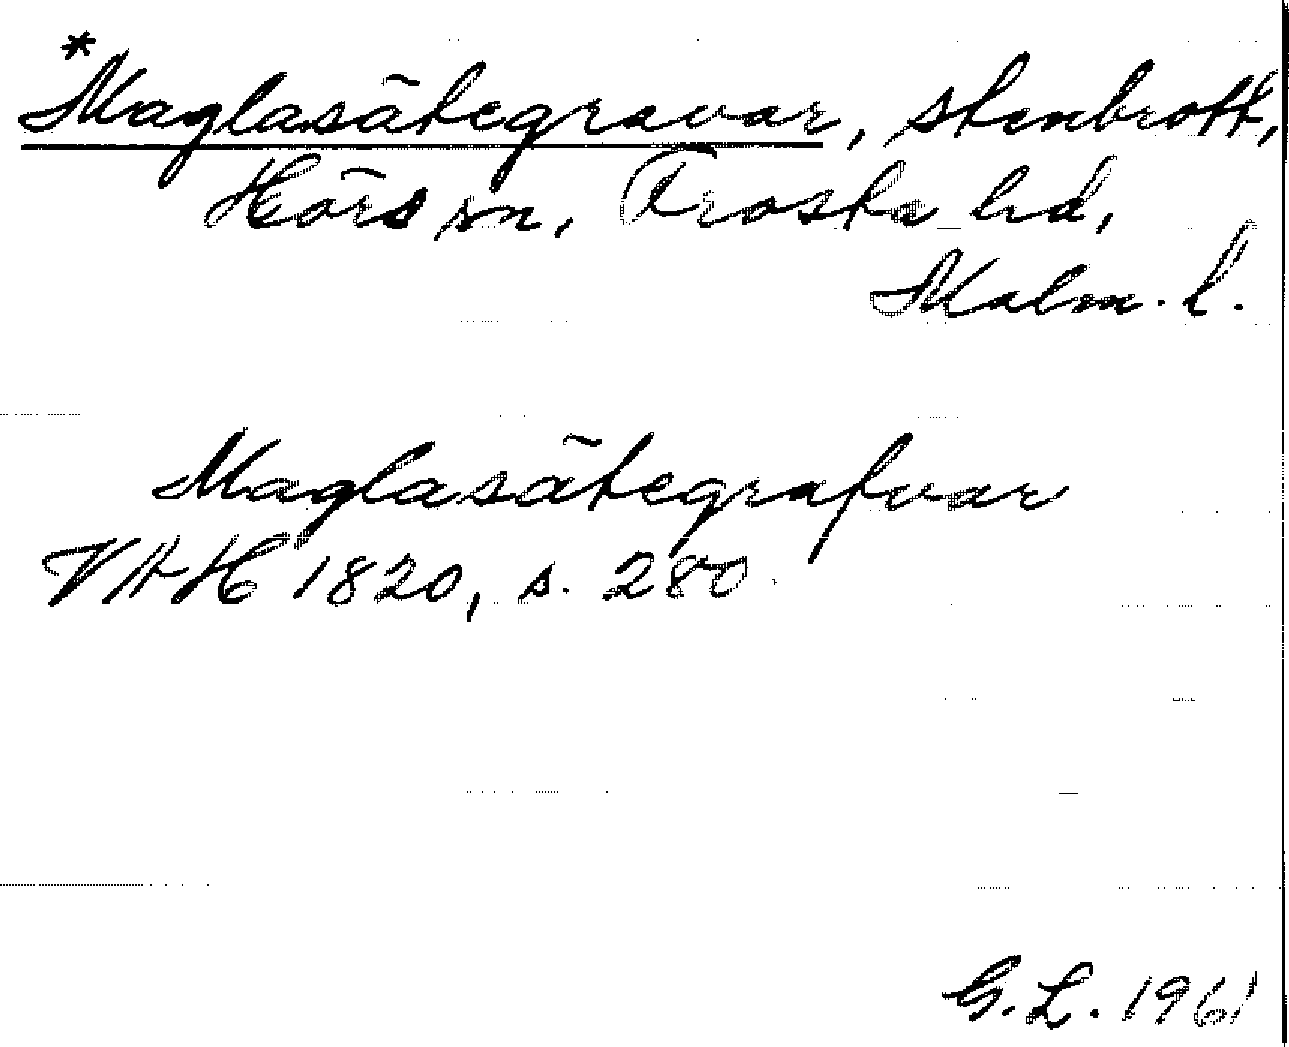 *Maglasätegravar, stenbrott,
Hörs sn, Frosta hd,
Malm. l.
Maglasätegrafvar
VAH 1820, s. 280.
G. L. 1961